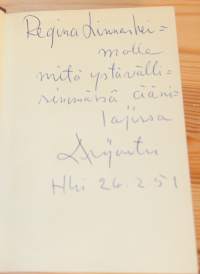 Regina Linnanhei=
molle
mitä ystävälli=
simmässä ääni=
lajissa
Hki 26.2.51